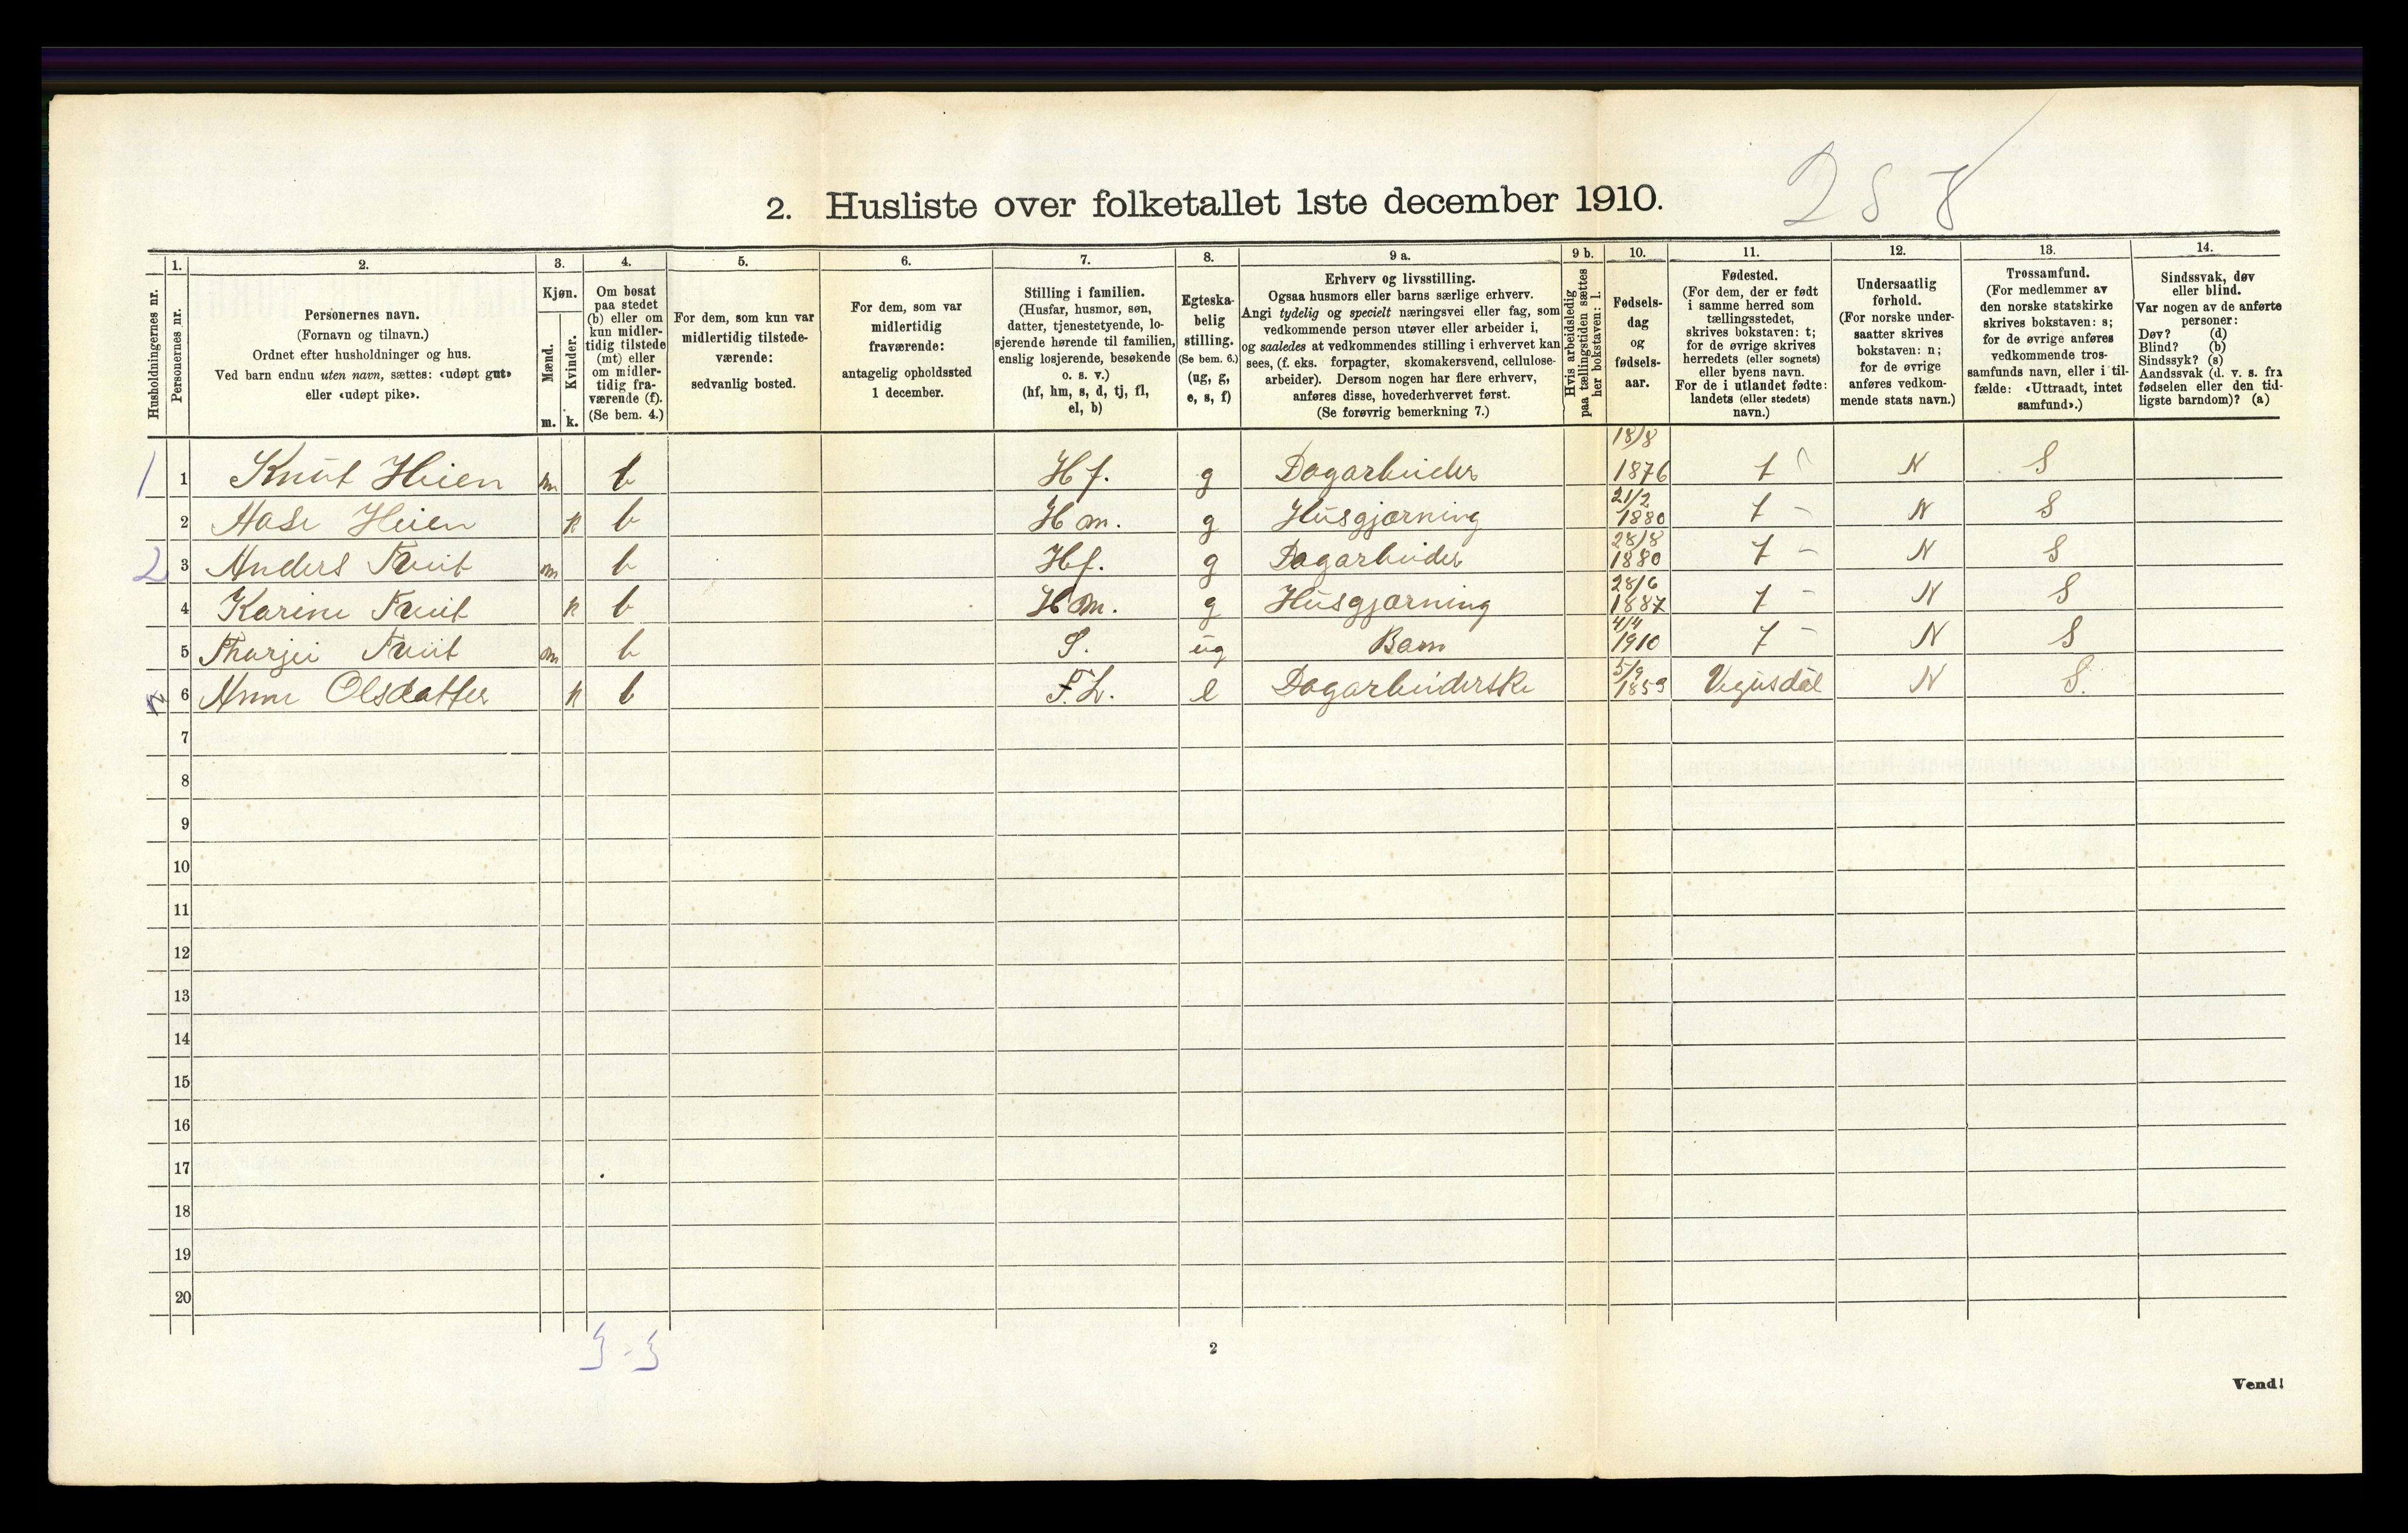 2. Husliste over folketallet 1ste december 1910.
288
Husholdningernes nr.
1. Personernes nr.
2. Personernes navn.
(Fornavn og tilnavn.)
Ordnet efter husholdninger og hus.
Ved barn endnu uten navn, sættes: «udøpt gut»
eller «udøpt pike».
3. Kjøn.
Mænd. m.
Kvinder. k.
4. Om bosat
paa stedet
(b) eller om
kun midler-
tidig tilstede
(mt) eller
om midler-
tidig fra-
værende (f).
(Se bem. 4.)
5. For dem, som kun var
midlertidig tilstede-
værende:
sedvanlig bosted.
6. For dem, som var
midlertidig
fraværende:
antagelig opholdssted
1 december.
7. Stilling i familien.
(Husfar, husmor, søn,
datter, tjenestetyende, lo-
sjerende hørende til familien,
enslig losjerende, besøkende
o. s. v.)
(hf, hm, s, d, tj, fl,
el, b)
8. Egteska-
belig
stilling.
(Se bem. 6.)
(ug, g,
e, s, f)
9 a. Erhverv og livsstilling.
Ogsaa husmors eller barns særlige erhverv.
Angi tydelig og specielt næringsvei eller fag, som
vedkommende person utøver eller arbeider i,
og saaledes at vedkommendes stilling i erhvervet kan
sees, (f. eks. forpagter, skomakersvend, cellulose-
arbeider). Dersom nogen har flere erhverv,
anføres disse, hovederhvervet først.
(Se forøvrig bemerkning 7.)
9 b. Hvis arbeidsledig
paa tællingstiden sættes
her bokstaven: l.
10. Fødsels-
dag
og
fødsels-
aar.
11. Fødested.
(For dem, der er født
i samme herred som
tællingsstedet,
skrives bokstaven: t;
for de øvrige skrives
herredets (eller sognets)
eller byens navn.
For de i utlandet fødte:
landets (eller stedets)
navn.)
12. Undersaatlig
forhold.
(For norske under-
saatter skrives
bokstaven: n;
for de øvrige
anføres vedkom-
mende stats navn.)
13. Trossamfund.
(For medlemmer av
den norske statskirke
skrives bokstaven: s;
for de øvrige anføres
vedkommende tros-
samfunds navn, eller i til-
fælde: «Uttraadt, intet
samfund».)
14. Sindssvak, døv
eller blind.
Var nogen av de anførte
personer:
Døv? (d)
Blind? (b)
Sindssyk? (s)
Aandssvak (d. v. s. fra
fødselen eller den tid-
ligste barndom)? (a)
1 1 Knut Heien m b Hf. g Dagarbeider 18/8 1876 t N S
2 Aase Heien k b Hm. g Husgjørning 21/2 1880 t - N S
2 3 Anders Tveit m b Hf. g Dagarbeider 28/8 1880 t - N S
4 Karine Tveit k b Hm. g Husgjørning 28/6 1887 t - N S
5 Thorjei Tveit m b S. ug Barn 4/4 1910 t - N S
6 Anne Olsdatter k b F.L. e Dagarbeiderske 5/9 1859 Vegusdal N S.
7
8
9
10
11
12
13
14
15
16
17
18
19
20
3-3
2
Vend!